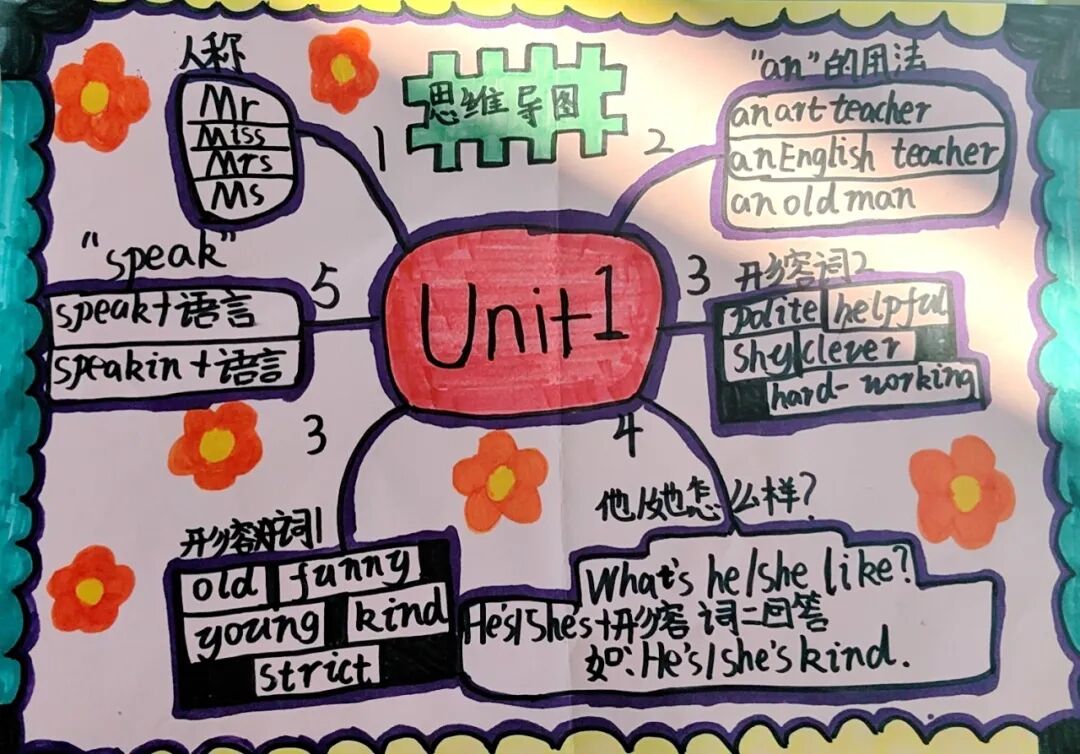 思维导图
Unit1
1
人称
Mr
Miss
Mrs
Ms
2
"an"的用法
an art teacher
an English teacher
an old man
3
形容词2
polite helpful
shy clever
hard-working
4
他/她怎么样?
What's he/she like?
He's/She's+形容词=回答
如:He's/she's kind.
3
形容词1
old funny
young kind
strict
5
"speak"
speak+语言
speak in+语言